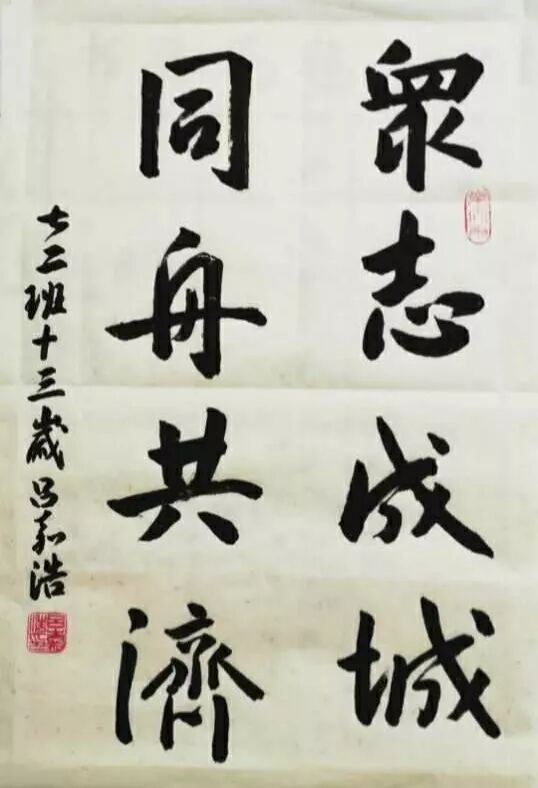 眾志成城
同舟共濟
七二班十三歲呂嘉浩